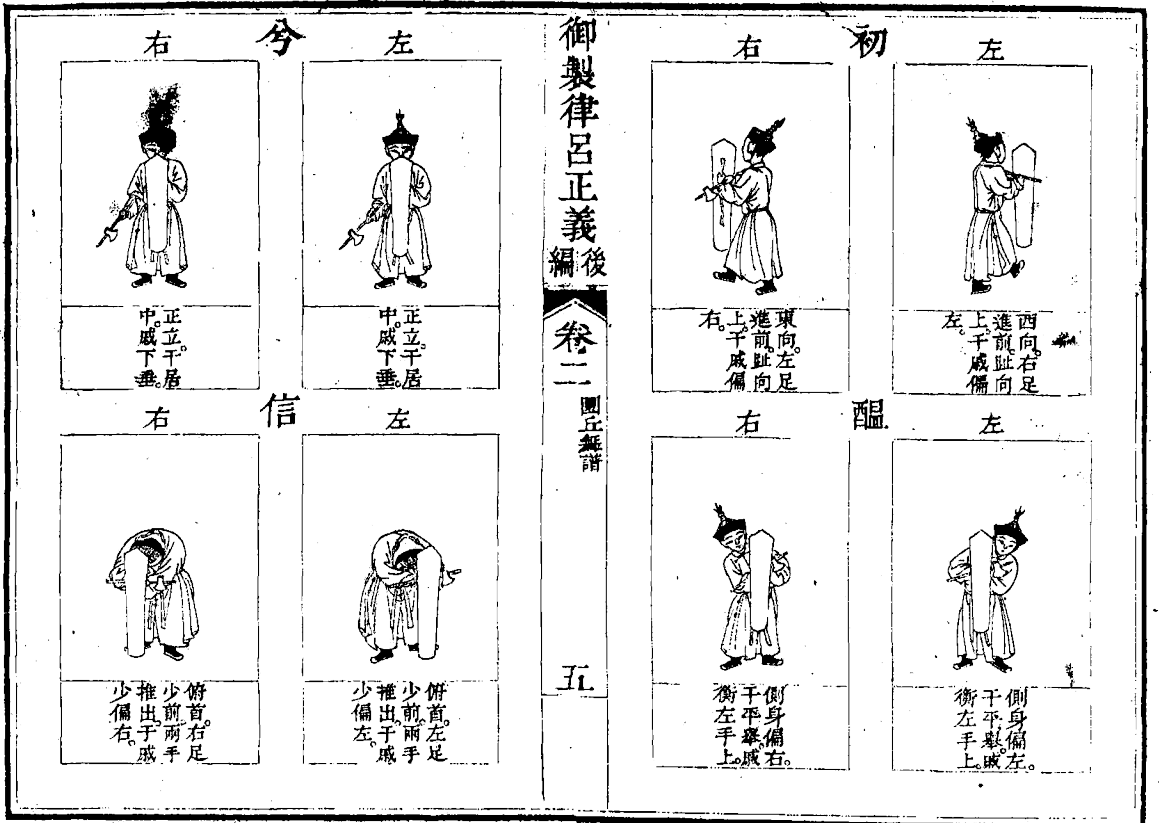 初
左
西向。右足
進前。趾向
上。干戚偏
左。
右
東向。左足
進前。趾向
上。干戚偏
右。
醖
左
側身偏左。
干平舉。戚
衡左手上。
右
側身偏右。
干平舉。戚
衡左手上。
御製律呂正義
後編
卷二
圜丘舞譜
五
兮
左
正立。干居
中。戚下垂。
右
正立。干居
中。戚下垂。
信
左
俯首。左足
少前。兩手
推出。干戚
少偏左。
右
俯首。右足
少前。兩手
推出。干戚
少偏右。